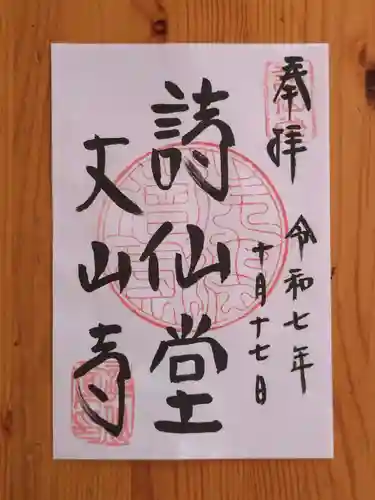 奉拝
令和七年
十月十七日
詩仙堂
丈山寺